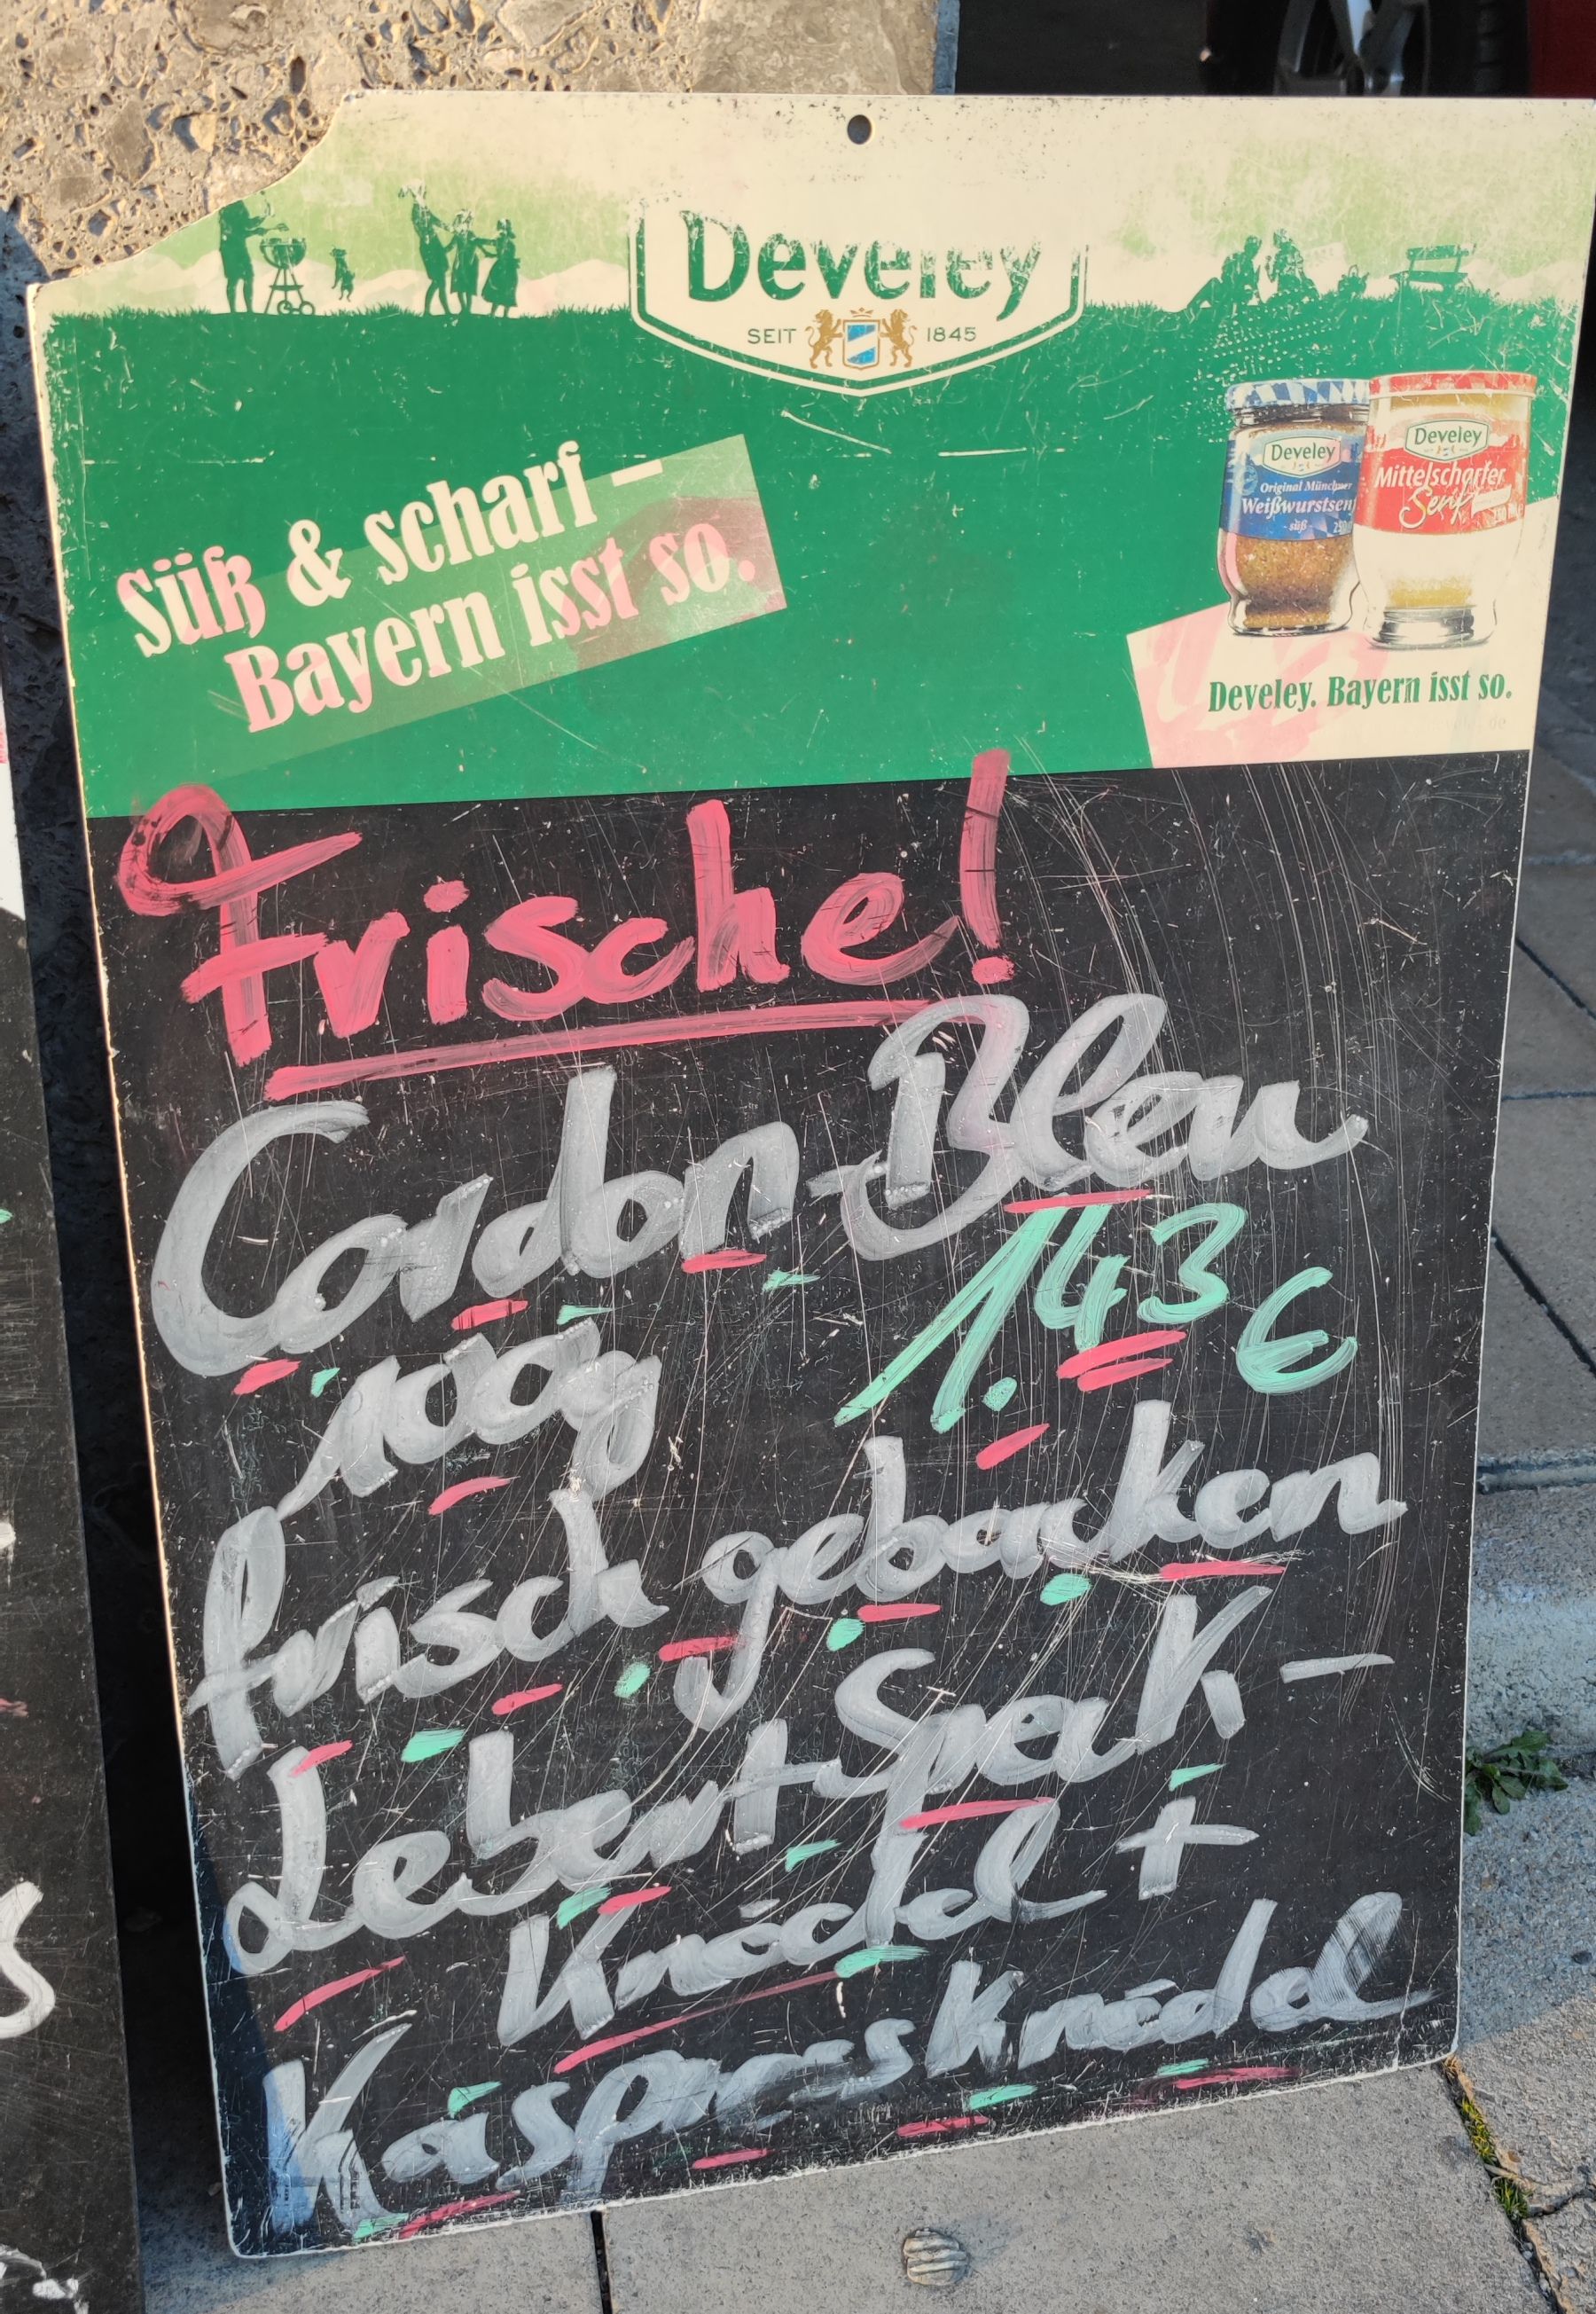 Develey
SEIT 1845
Süß & scharf –
Bayern isst so.
Develey
Original Münchner
Weißwurstsenf
- süß -
Develey
Mittelscharfer
Senf
Develey. Bayern isst so.
Frische!
Cordon-Bleu
100g 1.43 €
frisch gebacken
Leber+Speck-
Knödel +
Käspressknödel